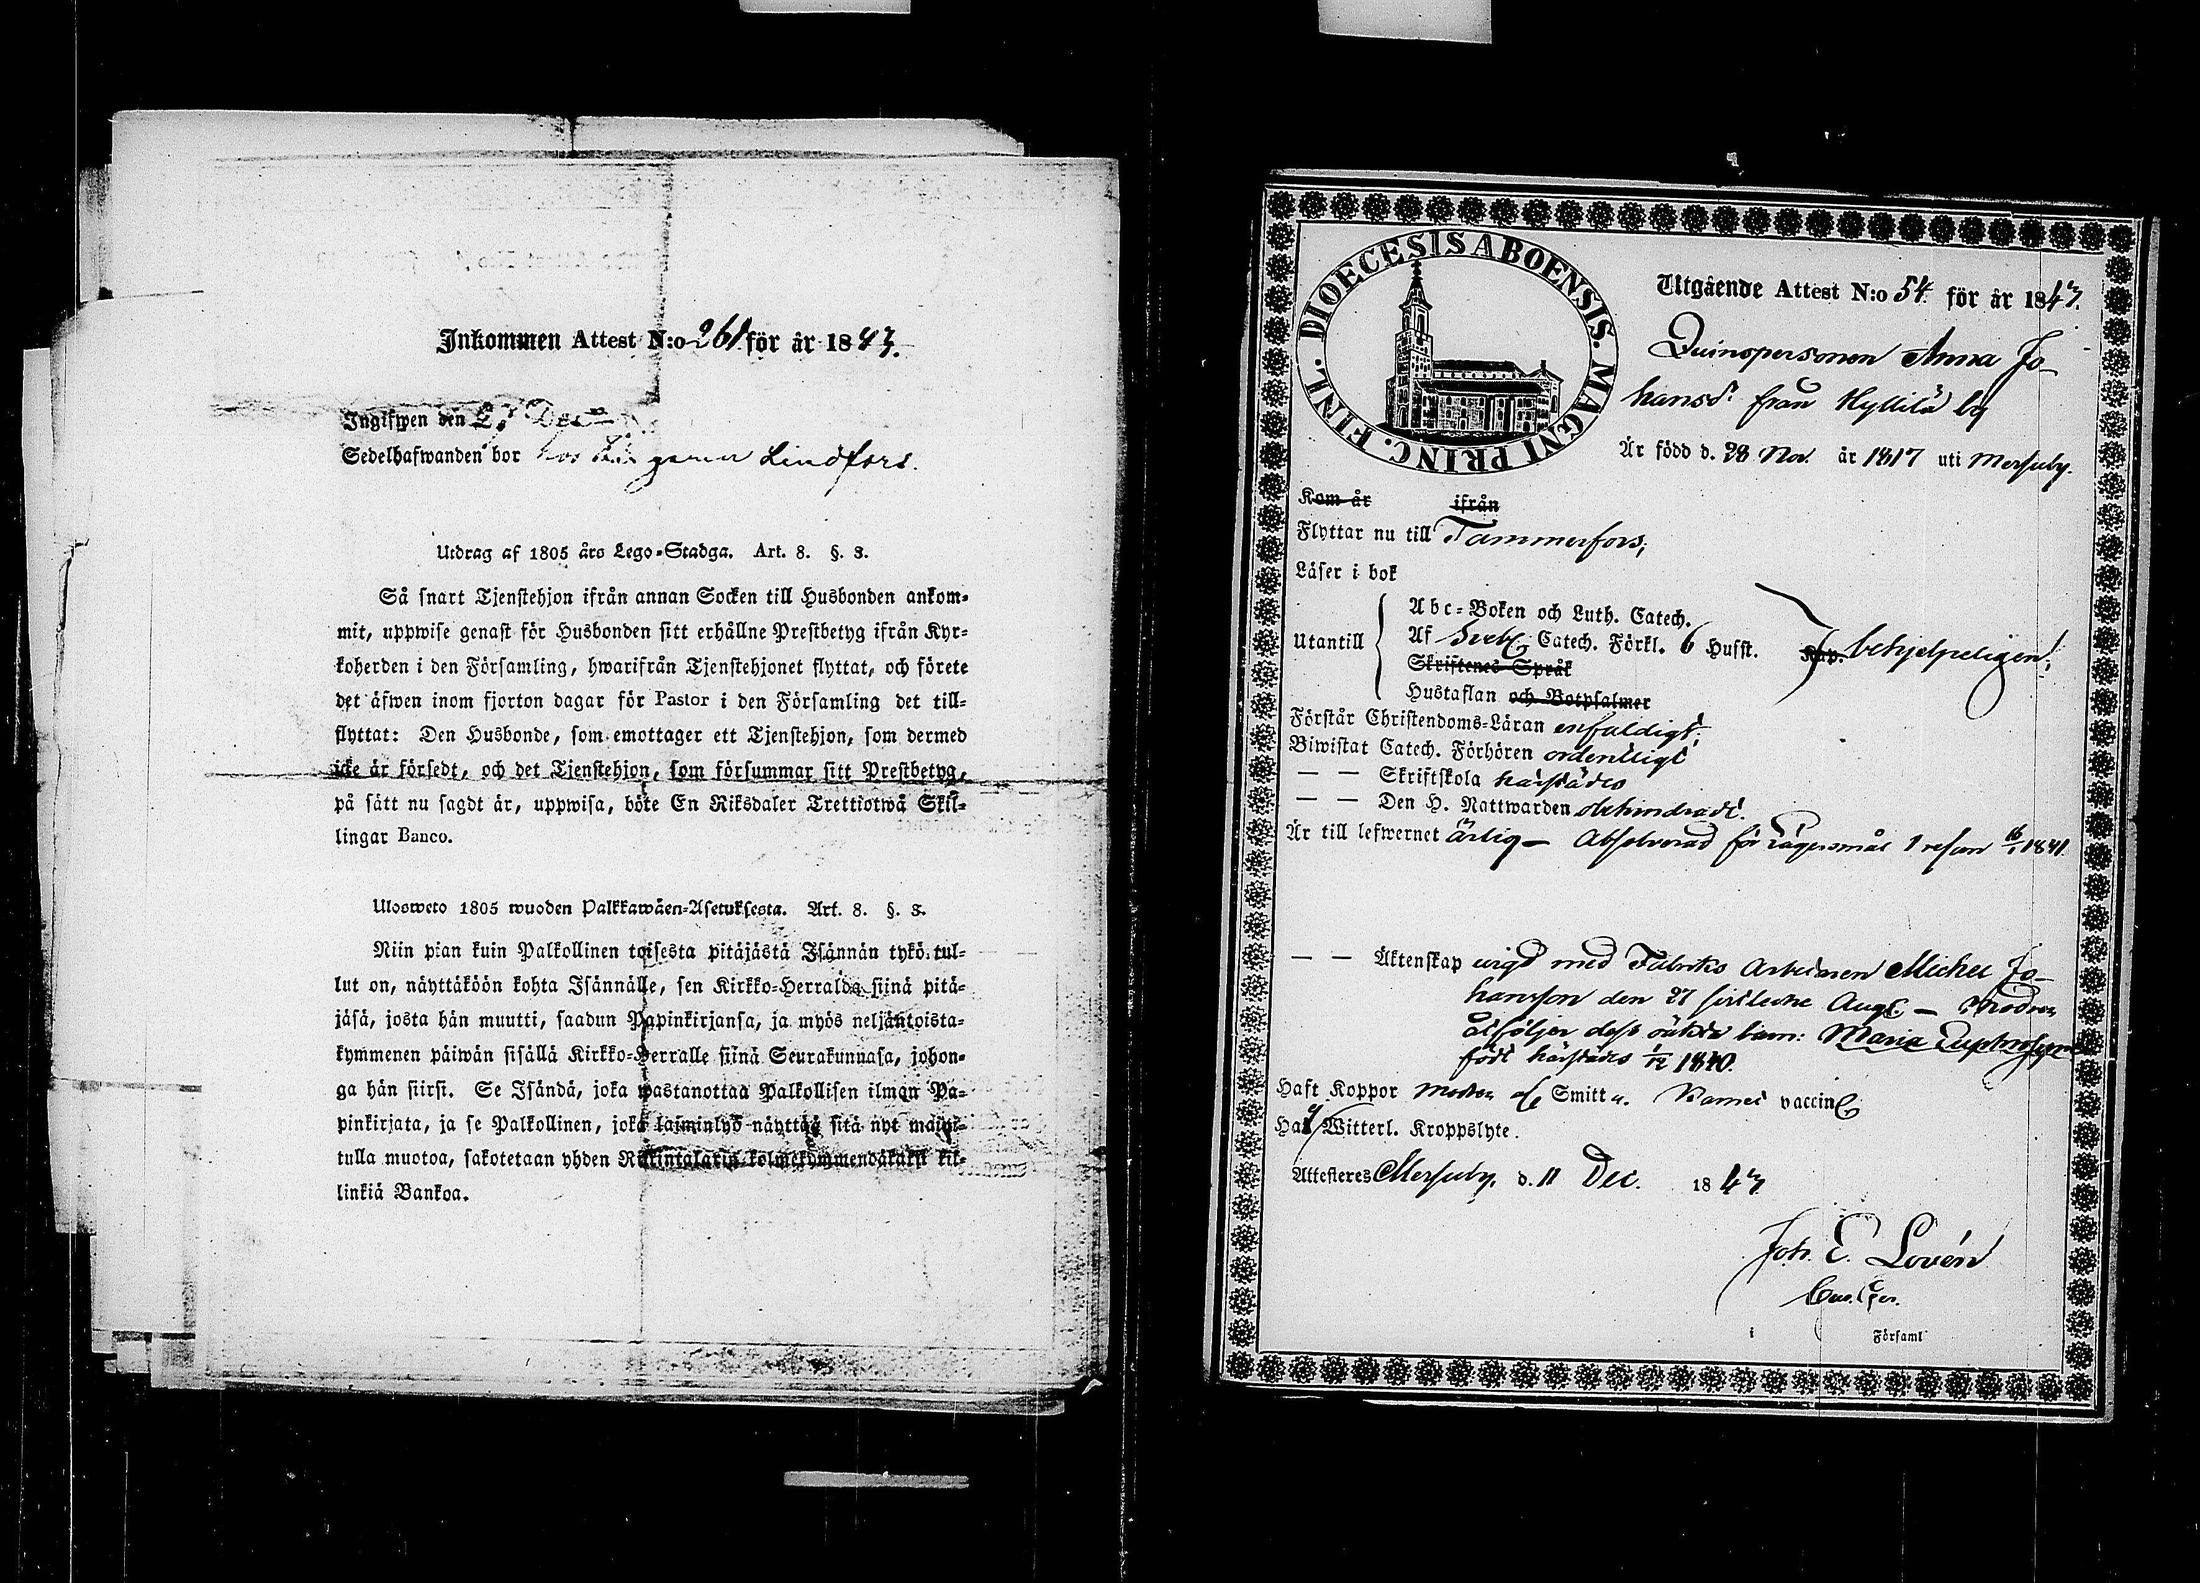 Inkommen Attest N:o 261 för år 1843.
Ingifwen den 27 Dec
Sedelhafwanden bor hos Lindfors.
Utdrag af 1805 års Lego-Stadga. Art. 8. §. 3.
Så snart Tjenstehjon ifrån annan Socken till Husbonden ankom-
mit, uppwise genast för Husbonden sitt erhållne Prestbetyg ifrån Kyr-
koherden i den Församling, hwarifrån Tjenstehjonet flyttat, och förete
det äfwen inom fjorton dagar för Pastor i den Församling det till-
flyttat: Den Husbonde, som emottager ett Tjenstehjon, som dermed
icke är försedt, och det Tjenstehjon, som försummar sitt Prestbetyg,
på sätt nu sagdt är, uppwisa, böte En Riksdaler Trettiotwå Skil-
lingar Banco.
Ulosweto 1805 wuoden Palkkawäen-Asetuksesta. Art. 8. §. 3.
Niin pian kuin Palkollinen toisesta pitäjästä Isännän tykö tul-
lut on, näyttäköön kohta Isännälle, sen Kirkko-Herralda siinä pitä-
jäsä, josta hän muutti, saadun Papinkirjansa, ja myös neljäntoista-
kymmenen päiwän sisällä Kirkko-Herralle siinä Seurakunnasa, johon-
ga hän siirsi. Se Isändä, joka wastanottaa Palkollisen ilman Pa-
pinkirjata, ja se Palkollinen, joka laiminlyö näyttää sitä nyt mainit-
tulla muotoa, sakotetaan yhden Riikintalarin kolmekymmendäkaksi kil-
linkiä Bankoa.
DIOECESIS ABOENSIS. MAGNI PRINC. FINL.
Utgående Attest N:o 54. för år 1843.
Quinspersonen Anna Jo-
hansdr från Hyllilä by
Är född d. 28 Nov. år 1817 uti Messuby.
Kom år ifrån
Flyttar nu till Tammerfors,
Läser i bok
Utantill
Abc-Boken och Luth. Catech.
Af Catech. Förkl. 6 Hufst. Kap. behjelpeligen,
Skriftenes Språk
Hustaflan och Botpsalmer
Förstår Christendoms-Läran enfaldigt,
Biwistat Catech. Förhören ordentligt
— — Skriftskola härstädes
— — Den H. Nattwarden obehindradt.
Är till lefwernet ärlig — Absolverad för Lägersmål 1 resan 1841.
— — Äktenskap wigd med Fabriks Arbetaren Michel Jo-
hansson den 27 sistledne Aug. — Modren
åtföljer dess oäkta barn: Maria Euphrosyne
född härstädes 1/12 1840.
Haft Koppor Modren Smitt u. Barnet vaccin
Haf Witterl. Kroppslyte.
Attesteres Messuby, d. 11 Dec. 1843
Joh. E. Lovén
i Församl